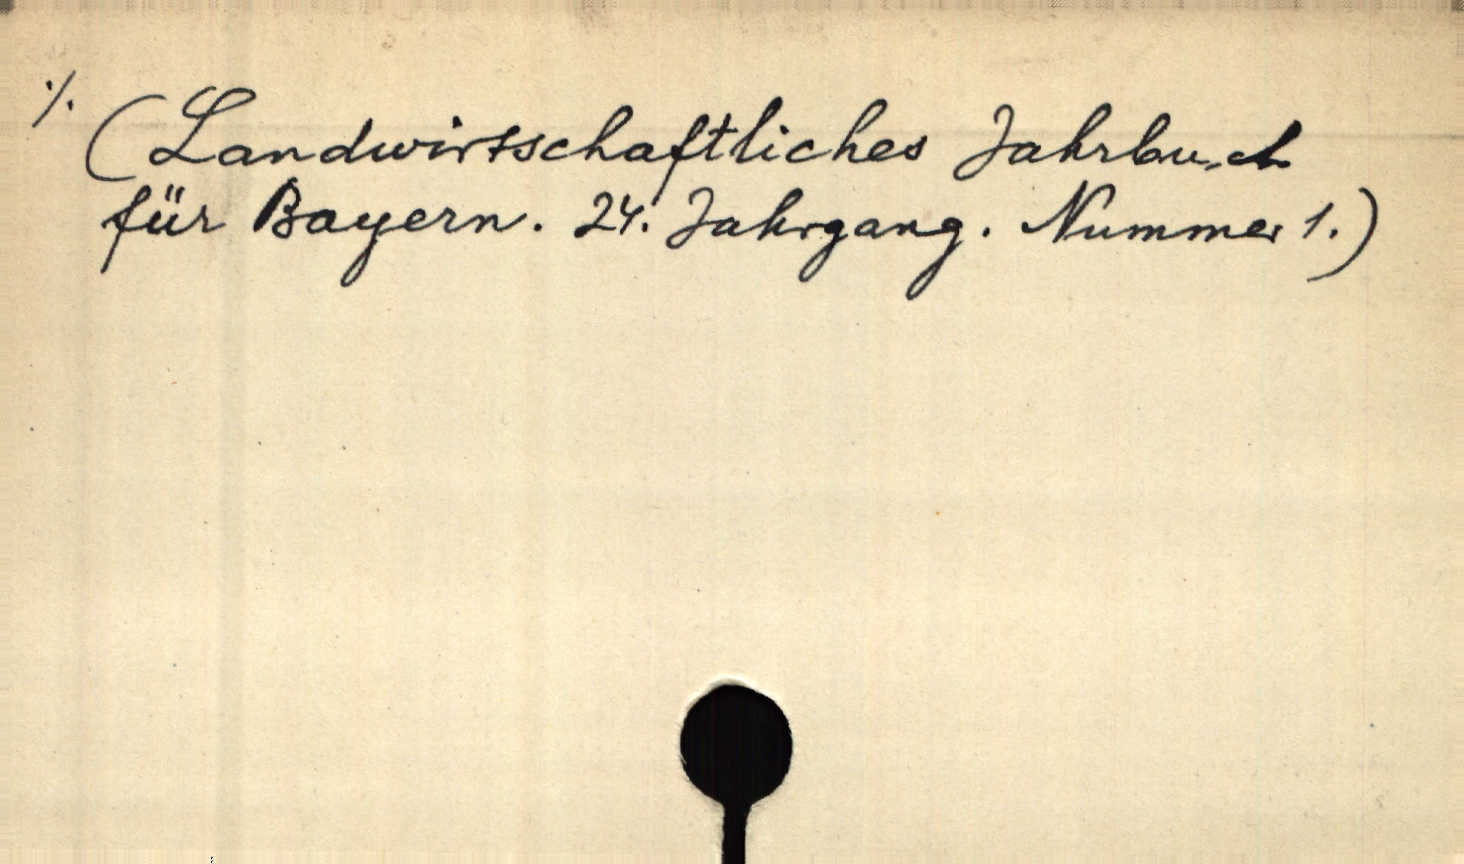 ./.
(Landwirtschaftliches Jahrbuch
für Bayern. 24. Jahrgang. Nummer 1.)